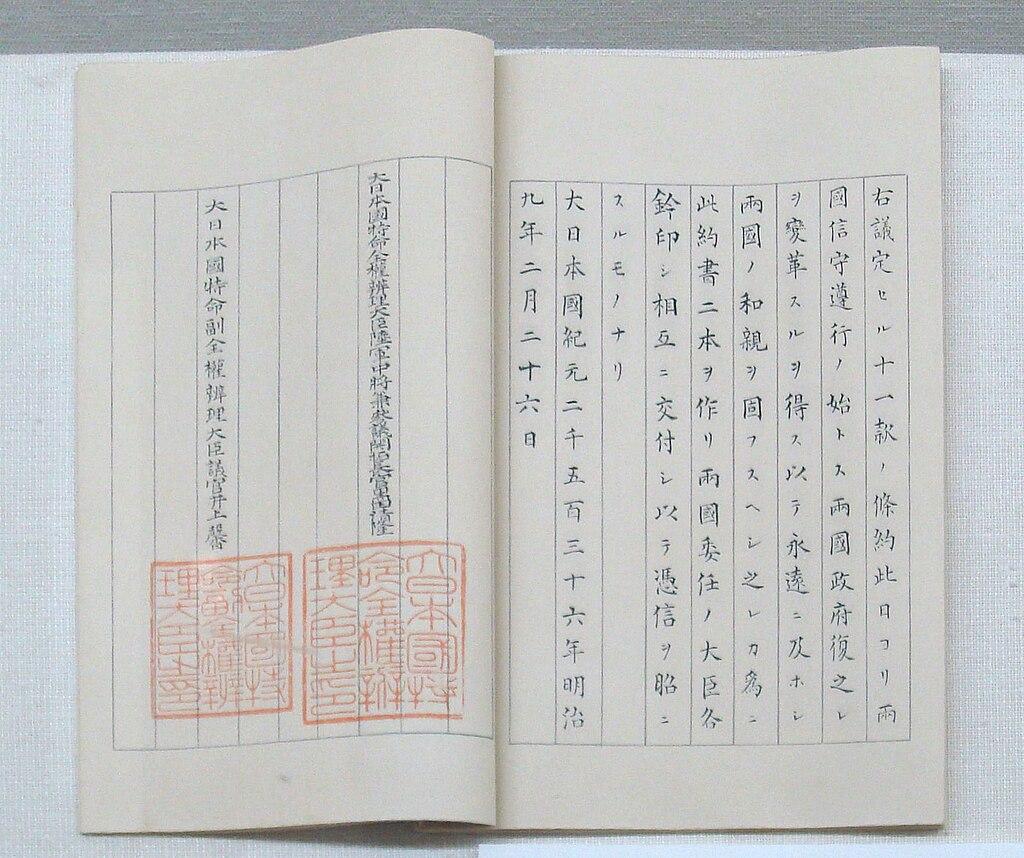 右議定セル十一款ノ條約此日ヨリ兩
國信守遵行ノ始トス兩國政府復之レ
ヲ變革スルヲ得ス以テ永遠ニ及ホシ
兩國ノ和親ヲ固フスヘシ之レカ為ニ
此約書二本ヲ作リ兩國委任ノ大臣各
鈐印シ相互ニ交付シ以テ憑信ヲ昭ニ
スルモノナリ
大日本國紀元二千五百三十六年明治
九年二月二十六日
大日本國特命全權辨理大臣陸軍中將兼參議開拓長官黒田清隆
大日本國特命全權辨理大臣之印
大日本國特命副全權辨理大臣議官井上馨
大日本國特命副全權辨理大臣之印